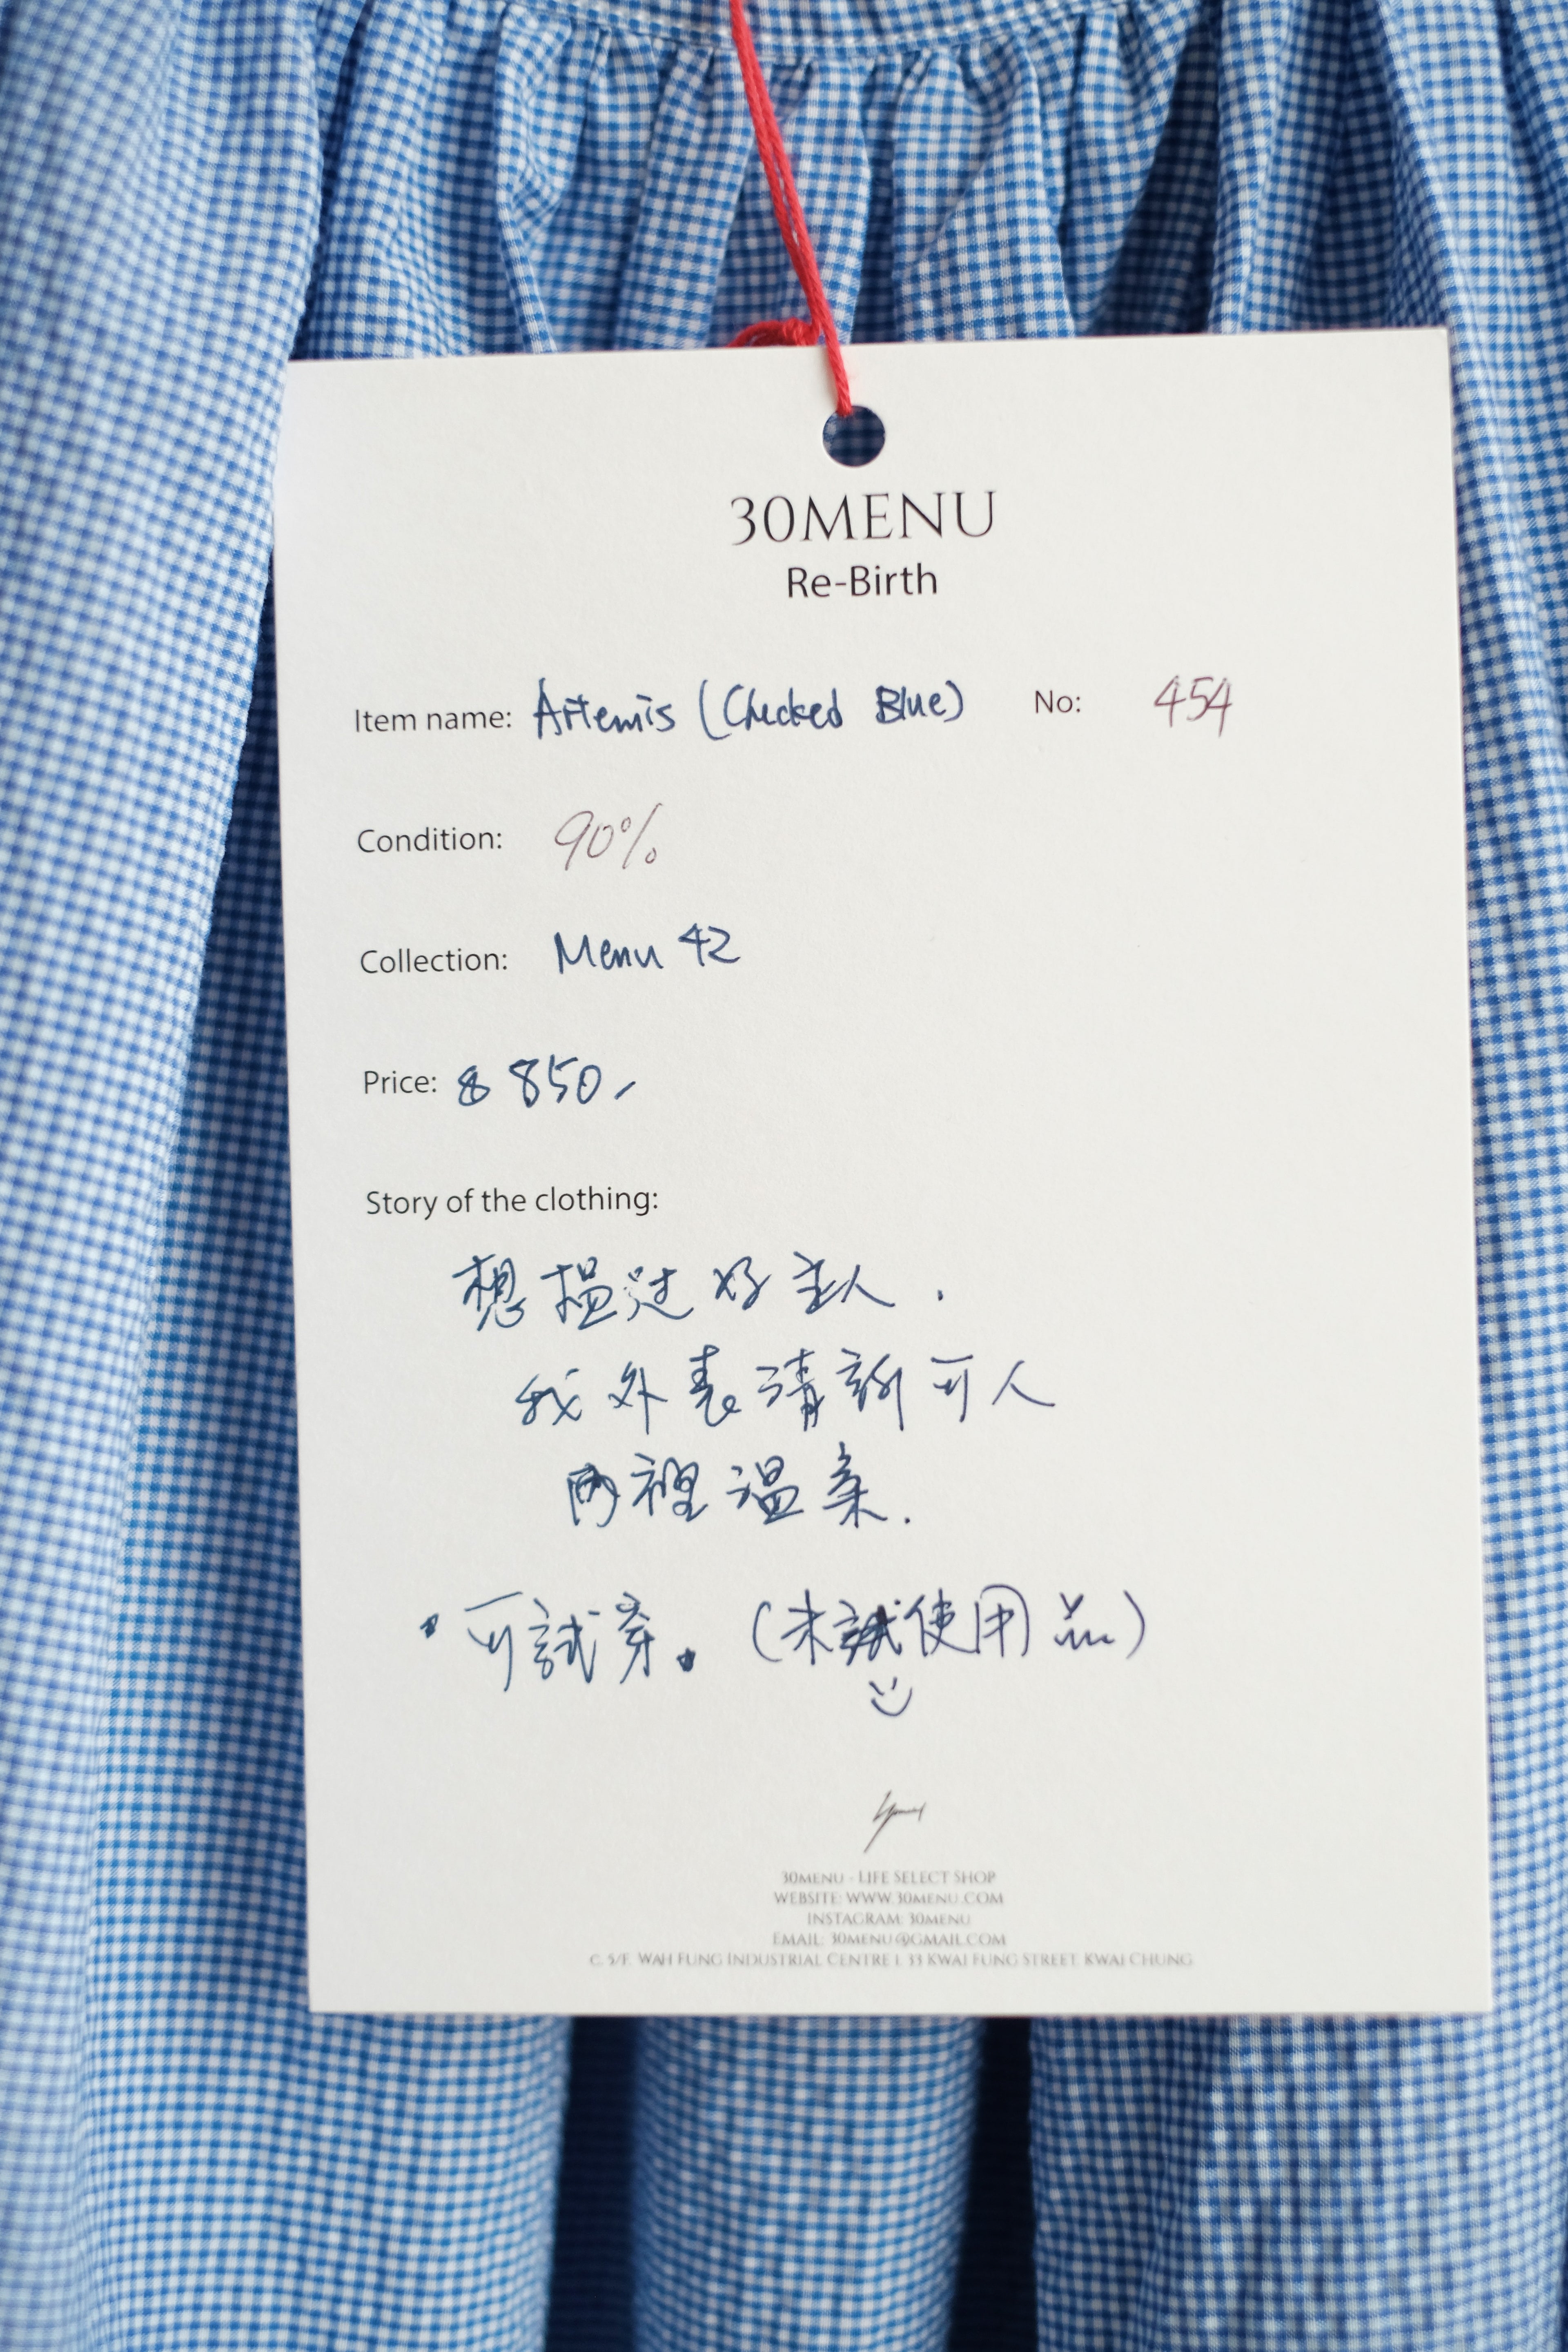 30MENU
Re-Birth
Item name: Artemis (Checked Blue) No: 454
Condition: 90%
Collection: Menu 42
Price: $ 850.-
Story of the clothing:
想搵过好主人.
我外表清新可人
内裡温柔.
·可試穿. (未試使用品)
30MENU - LIFE SELECT SHOP
WEBSITE: WWW.30MENU.COM
INSTAGRAM: 30MENU
EMAIL: 30MENU@GMAIL.COM
C, 5/F, WAH FUNG INDUSTRIAL CENTRE 1, 33 KWAI FUNG STREET, KWAI CHUNG